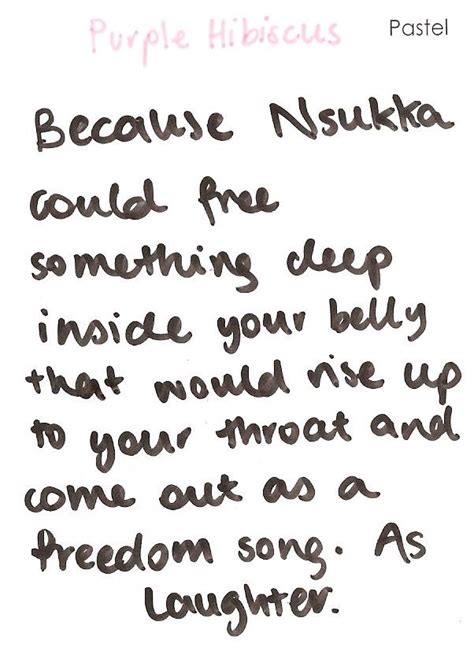 Purple Hibiscus Pastel
Because Nsukka
could free
something deep
inside your belly
that would rise up
to your throat and
come out as a
freedom song. As
laughter.